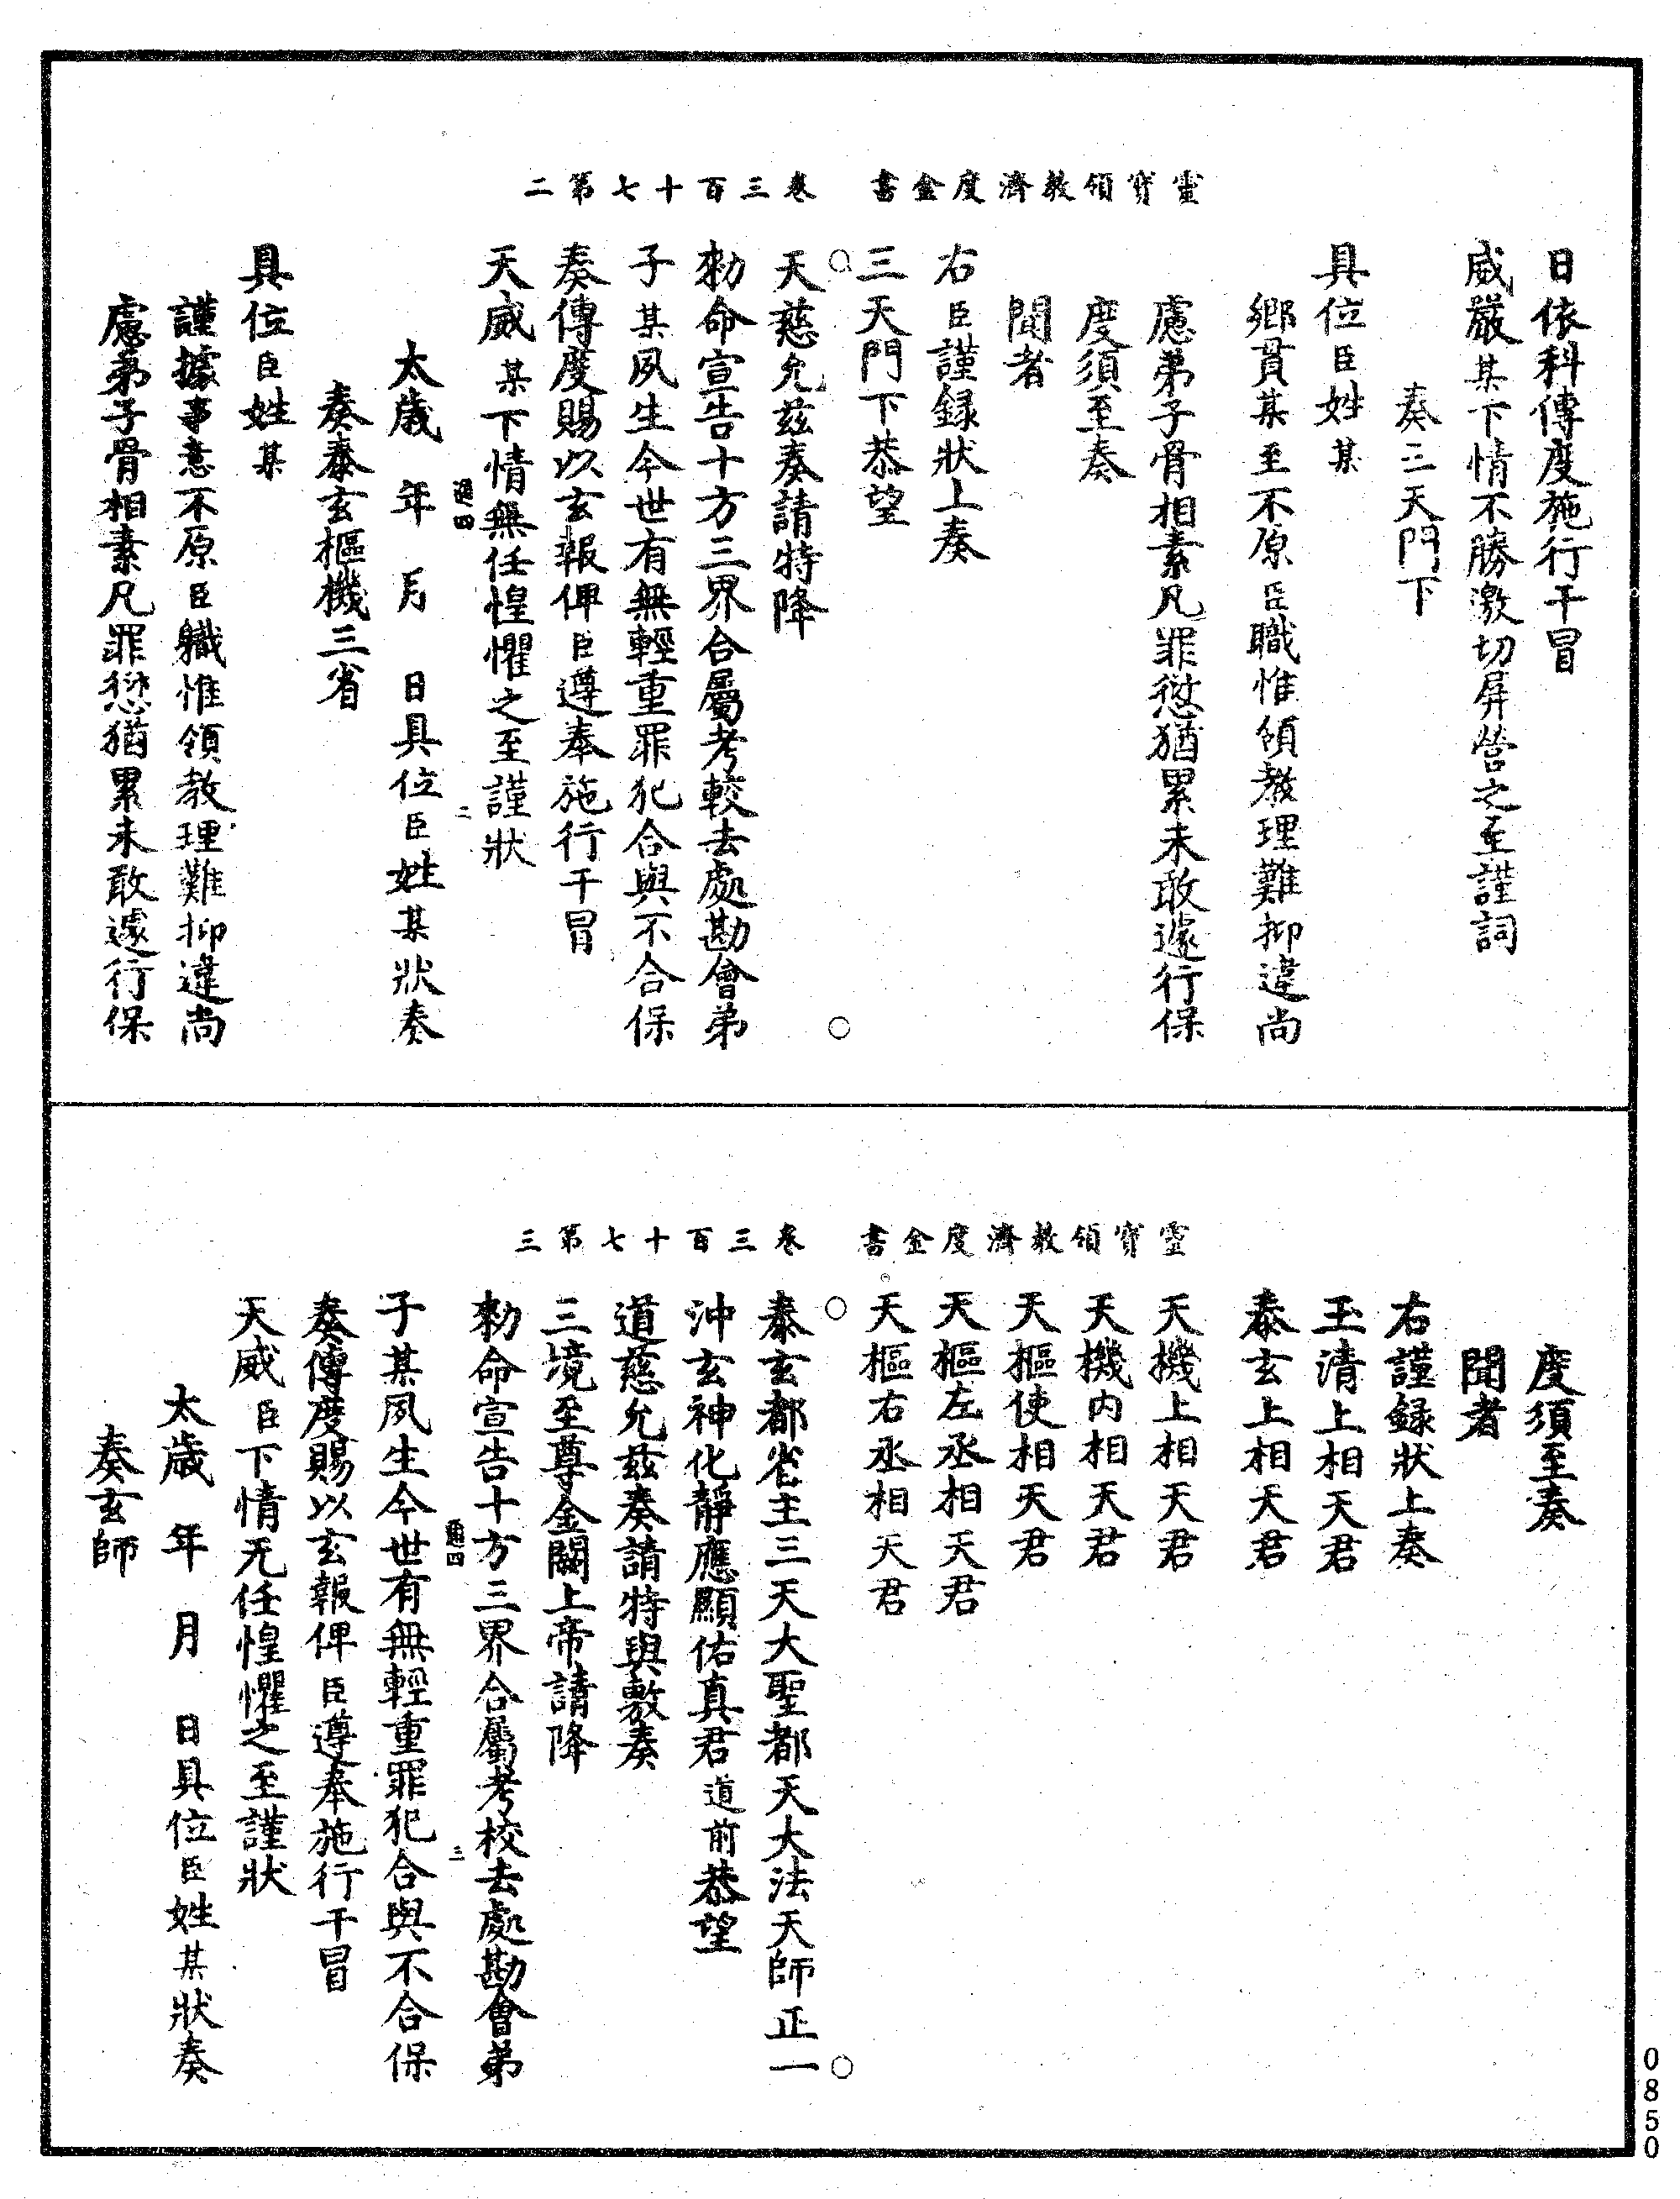 靈寶領教濟度金書　卷三百十七第二
日依科傳度施行干冒
威嚴某下情不勝激切屏營之至謹詞
奏三天門下
具位臣姓某
鄉貫某至不原臣職惟領教理難抑違尚
慮弟子骨相素凡罪愆猶累未敢遽行保
度須至奏
聞者
右臣謹録狀上奏
三天門下恭望
天慈允茲奏請特降
勑命宣告十方三界合屬考較去處勘會弟
子某夙生今世有無輕重罪犯合與不合保
奏傳度賜以玄報俾臣遵奉施行干冒
天威某下情無任惶懼之至謹狀
通四
二
太歲　年　月　日具位臣姓某狀奏
奏泰玄樞機三省
具位臣姓某
謹據事意不原臣職惟領教理難抑違尚
慮弟子骨相素凡罪愆猶累未敢遽行保
靈寶領教濟度金書　卷三百十七第三
度須至奏
聞者
右謹録狀上奏
玉清上相天君
泰玄上相天君
天機上相天君
天機内相天君
天樞使相天君
天樞左丞相天君
天樞右丞相天君
泰玄都省主三天大聖都天大法天師正一
沖玄神化靜應顯佑真君道前恭望
道慈允茲奏請特與敷奏
三境至尊金闕上帝請降
勑命宣告十方三界合屬考校去處勘會弟
通四
三
子某夙生今世有無輕重罪犯合與不合保
奏傳度賜以玄報俾臣遵奉施行干冒
天威臣下情无任惶懼之至謹狀
太歲　年　月　日具位臣姓某狀奏
奏玄師
0850